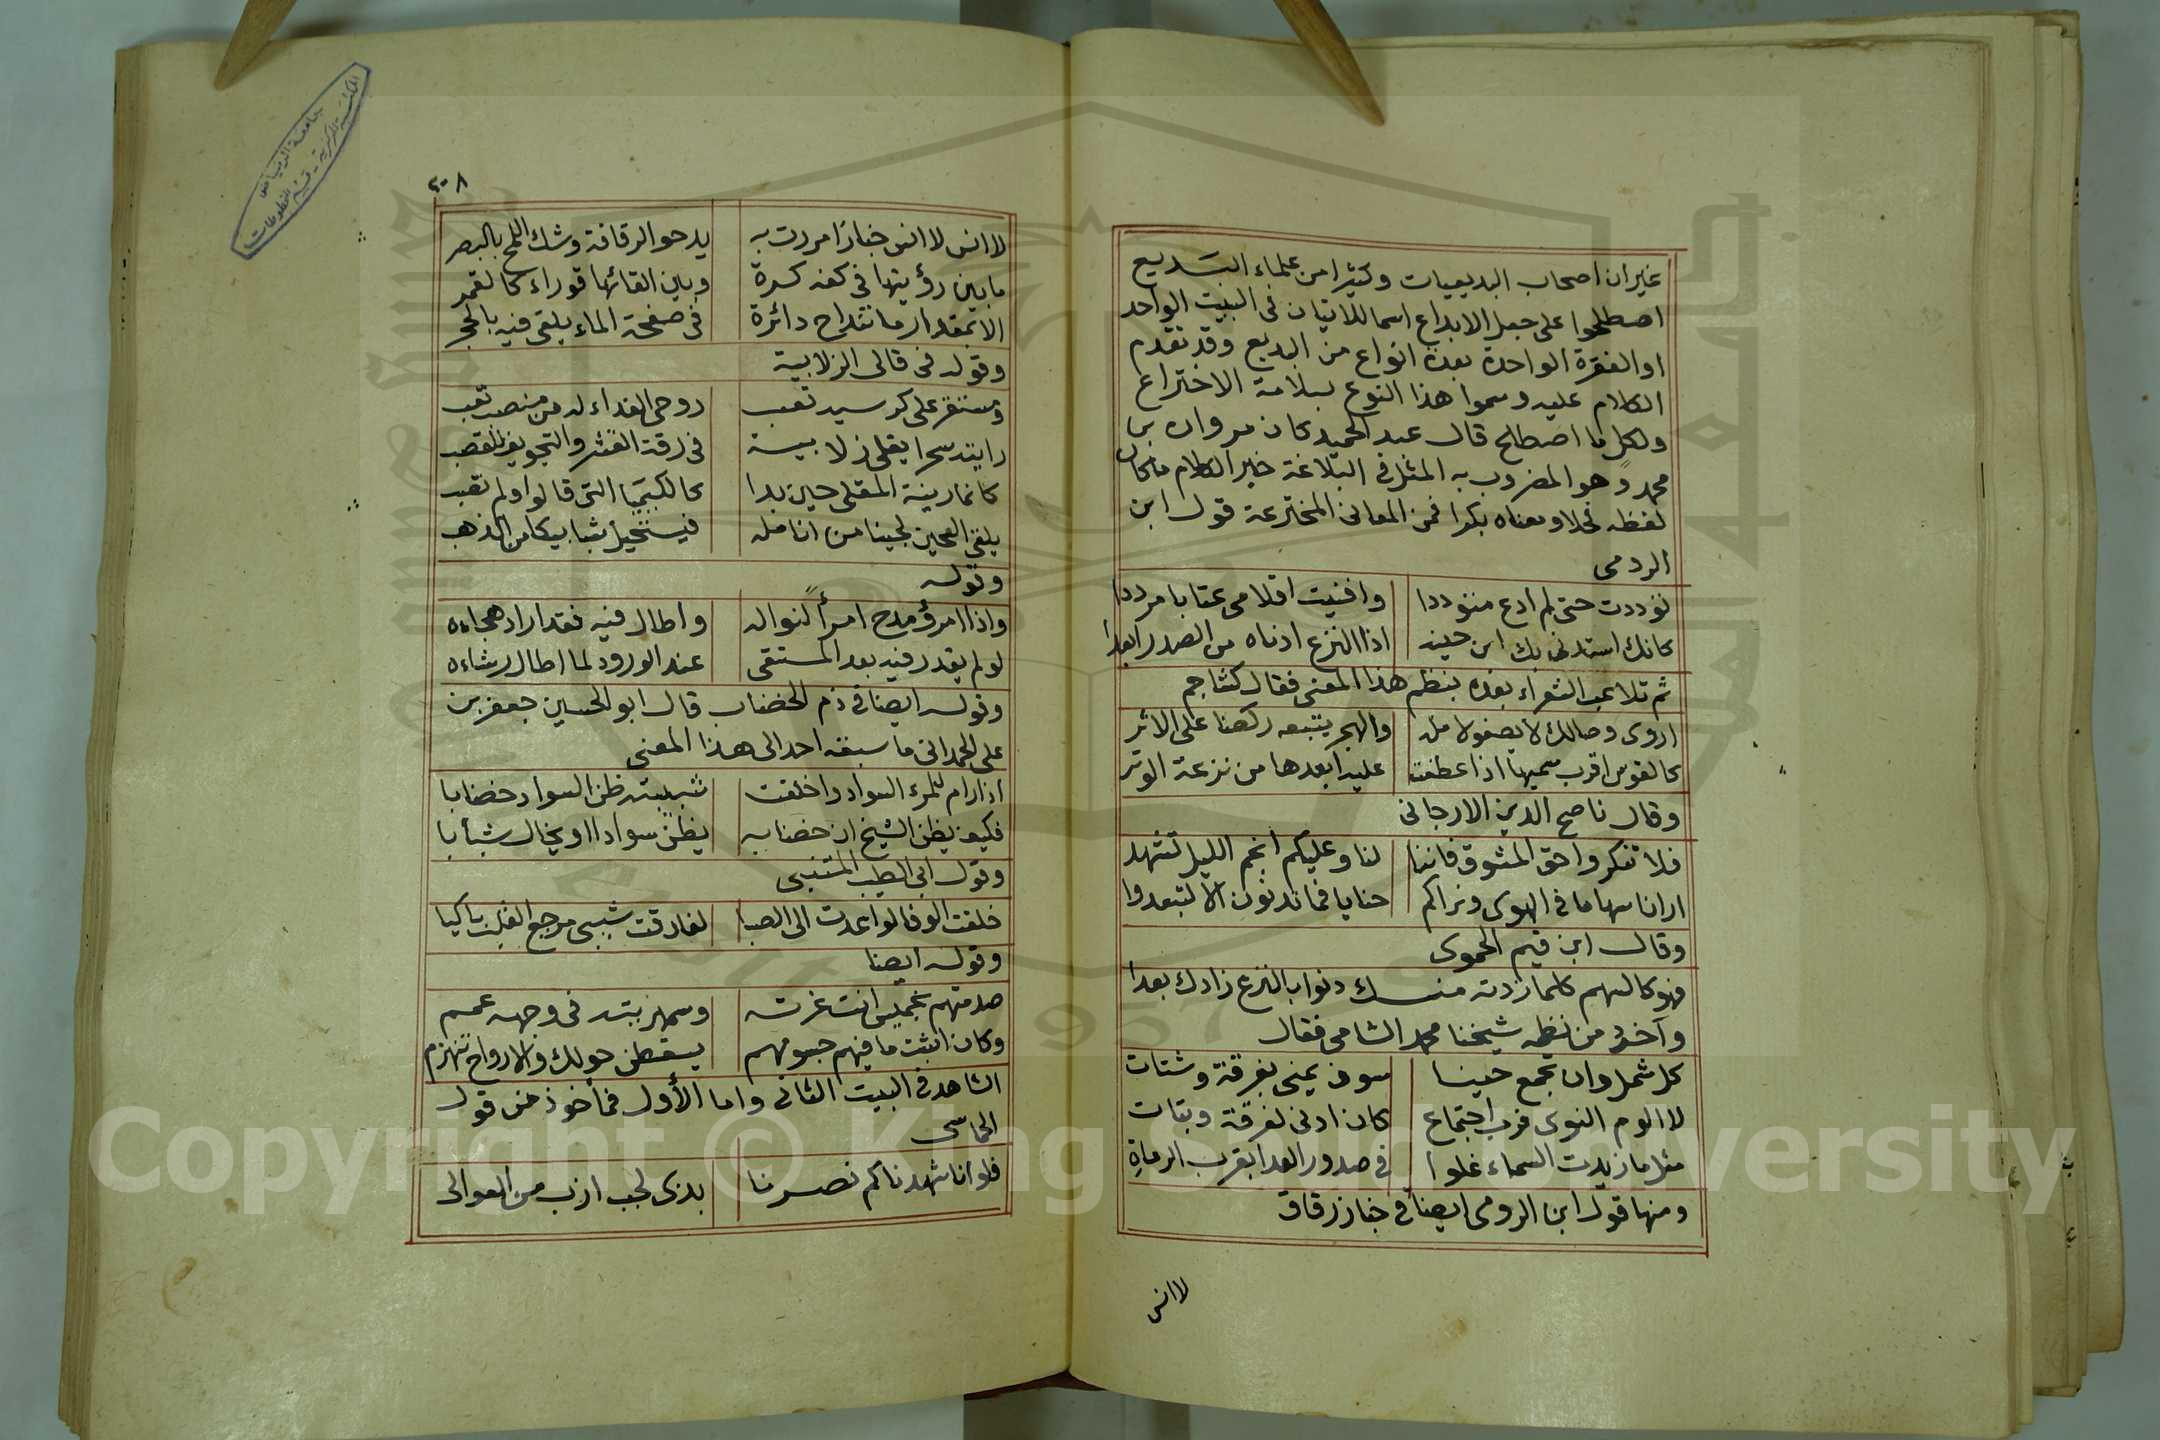 غير ان اصحاب البديعيات وكثيرا من علماء البديع
اصطلحوا على جعل الابداع اسما للاتيان فى البيت الواحد
او الفقرة الواحدة بعدة انواع من البديع وقد تقدم
الكلام عليه وسموا هذا النوع بسلامة الاختراع
ولكل ما اصطلح قال عبد الحميد كاتب مروان بن
محمد وهو المضروب به المثل فى البلاغة خير الكلام ما كان
لفظه فحلا ومعناه بكرا فمن المعانى المخترعة قول ابن
الرومى
توددت حتى لم ادع متوددا وافنيت اقلامى عتابا مرددا
كانك استدنى بك ابن حنيه اذا النزع ادناه من الصدر ابعدا
ثم تلاعب الشعراء بعده بنظم هذا المعنى فقال كشاجم
اروى وصالك لا يصفو لامله والهجر يتبعه ركضا على الاثر
كالقوس اقرب سهميها اذا عطفت عليه ابعدها من نزعة الوتر
وقال ناصح الدين الارجانى
فلا تنكروا حق المشوق فاننا لنا وعليكم انجم الليل تشهد
ارانا سهاما فى الهوى ونراكم حنايا فما تدنون الا لتبعدوا
وقال ابن قيم الحموى
فهو كالسهم كلما زدته منك دنوا بالنزع زادك بعدا
وآخذ من نظمه شيخنا محمد الشامى فقال
كل شمل وان تجمع حينا سوف يمنى بفرقة وشتات
لا الوم النوى فرب اجتماع كان ادنى لفرقة وبتات
مثل ما زيدت السماء غلوا فى صدور العدا بقرب الرماة
ومنها قول ابن الرومى ايضا فى خباز رقاق
لا انس
٢٠٨
لا انس لا انس خبازا مررت به يدحو الرقاقة وشك اللمح بالبصر
ما بين رؤيتها فى كفه كرة وبين القائها قوراء كالقمر
الا بمقدار ما تنداح دائرة فى صفحة الماء يلقى فيه بالحجر
وقوله فى قالى الزلابية
ومستقر على كرسيه تعب روحى الفداء له من منصب تعب
رايته سحرا يقلى زلابية فى رقة القشر والتجويف كالقصب
كانما زيته المقلى حين بدا كالكيميا التى قالوا ولم تصب
يلقى العجين لجينا من انامله فيستحيل شبابيكا من الذهب
وقوله
واذا امرؤ مدح امرأ لنواله واطال فيه فقد اراد هجاءه
لو لم يقدر فيه بعد المستقى عند الورود لما اطال رشاءه
وقوله ايضا فى ذم الخضاب قال ابو الحسين جعفر بن
على الحمدانى ما سبقه احد الى هذا المعنى
اذا رام للمرء السواد واخلقت شبيبته ظن السواد خضابا
فكيف يظن الشيخ ان خضابه يظن سوادا او يخال شبابا
وقول ابى الطيب المتنبى
خلقت الوفا لو اعدت الى الصبا لفارقت شيبى موجع القلب باكيا
وقوله ايضا
صدمتهم بخميس انت غرته وسمهريته فى وجهه عمم
وكان اثبت ما فيهم جسومهم يسقطن حولك والارواح تنهزم
الشاهد فى البيت الثانى واما الأول فمأخوذ من قول
الحماسى
فلو انا شهدناكم نصرنا بذى لجب ازب من العوالى
جامعة الرياض
المكتبة المركزية - قسم المخطوطات
Copyright © King Saud University
1957